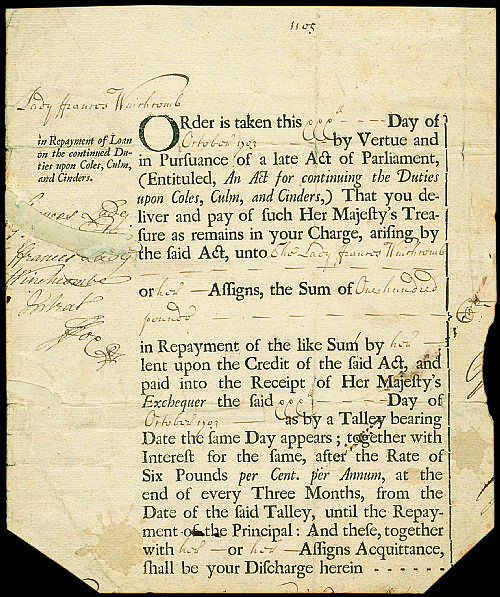 1105
Lady ffrances Winchcomb
in Repayment of Loan
on the continued Du-
ties upon Coles, Culm,
and Cinders.
ORder is taken this xxxth - - - Day of
October 1703 by Vertue and
in Purſuance of a late Act of Parliament,
(Entituled, An Act for continuing the Duties
upon Coles, Culm, and Cinders,) That you de-
liver and pay of ſuch Her Majeſty's Trea-
ſure as remains in your Charge, ariſing by
the ſaid Act, unto The Lady ffrances Winchcomb
or her — Aſſigns, the Sum of One hundred
pounds
in Repayment of the like Sum by her
lent upon the Credit of the ſaid Act, and
paid into the Receipt of Her Majeſty's
Exchequer the ſaid xxxth - - - Day of
October 1703 — as by a Talley bearing
Date the ſame Day appears; together with
Intereſt for the ſame, after the Rate of
Six Pounds per Cent. per Annum, at the
end of every Three Months, from the
Date of the ſaid Talley, until the Repay-
ment of the Principal: And theſe, together
with her — or her — Aſſigns Acquittance,
ſhall be your Diſcharge herein - - - - - -
ffrances Lady
Winchcombe
Intrat